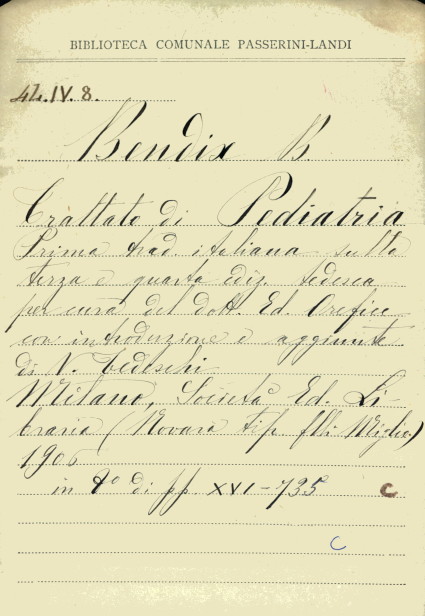 BIBLIOTECA COMUNALE PASSERINI-LANDI
4L.IV.8.
Bendix B.
Trattato di Pediatria
Prima trad. italiana sulla
terza e quarta ediz. tedesca
per cura del dott. Ed. Orefice
con introduzione e aggiunte
di V. Tedeschi
Milano, Società Ed. Li-
braria (Novara tip. flli Miglio)
1906
in 8º di pp XVI-735
C
C